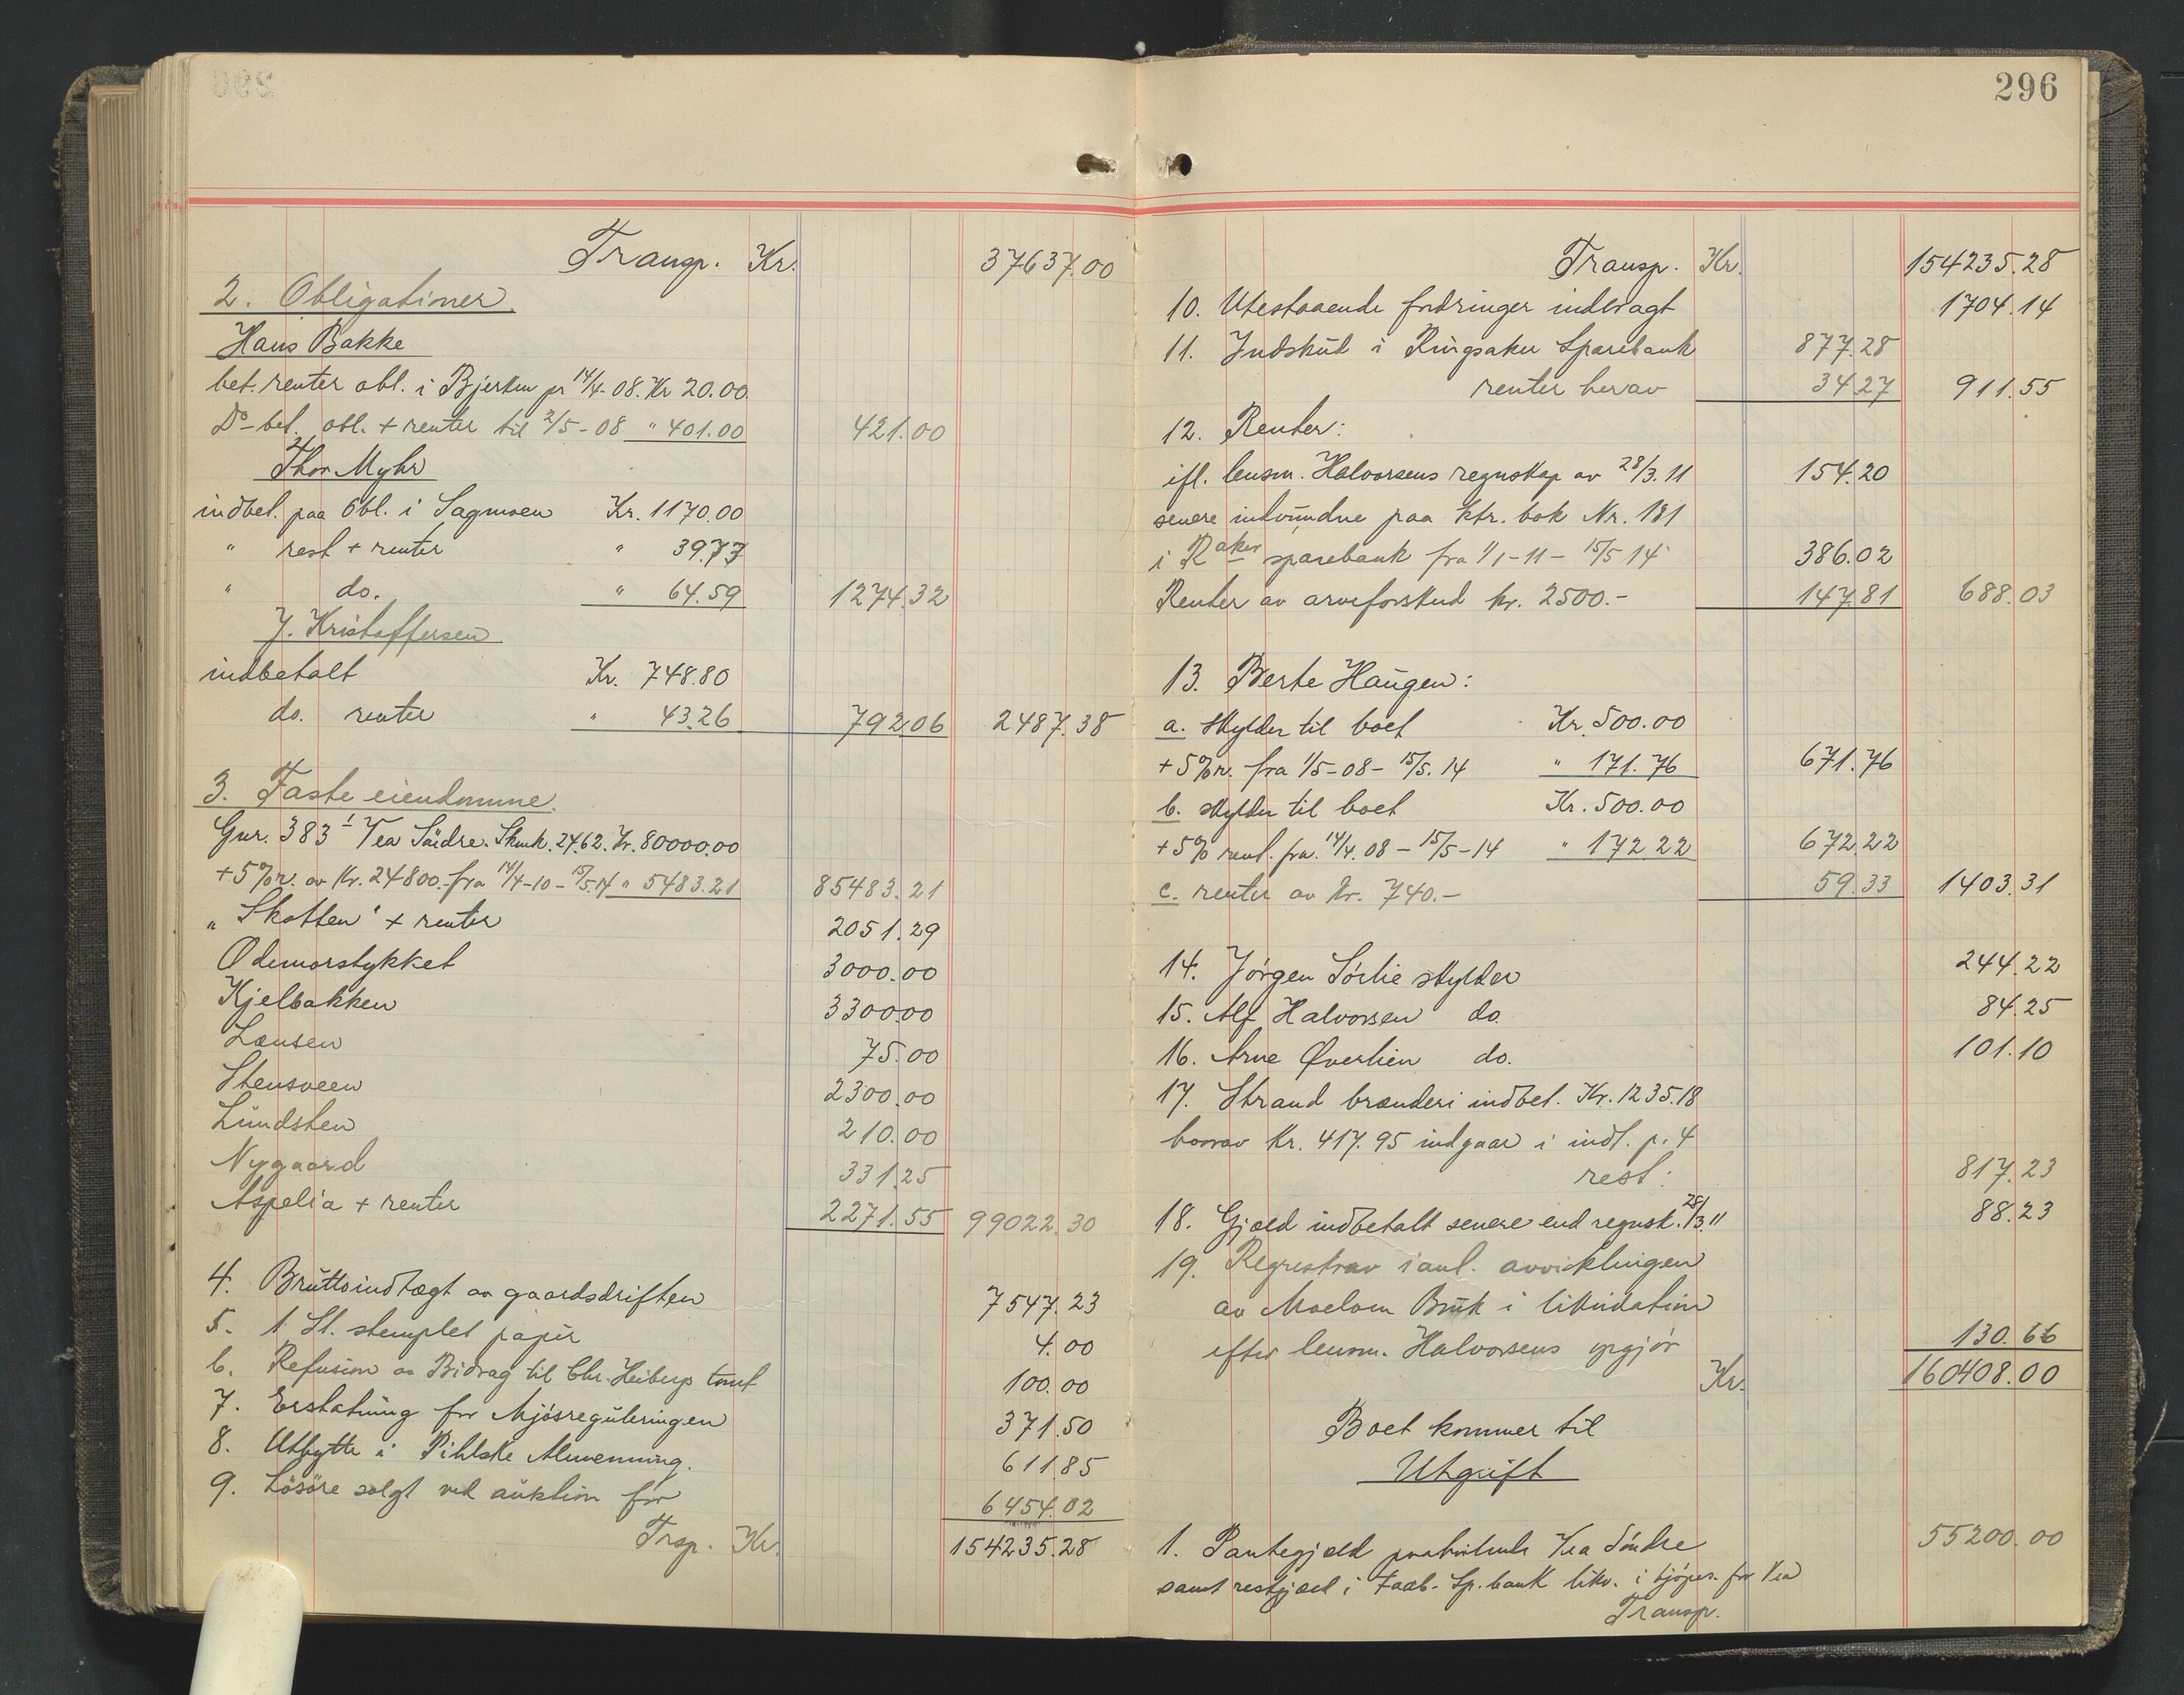 Transp. Kr. 37637.00
2. Obligationer.
Hans Bakke
bet. renter obl. i Bjerken pr 14/4-08. Kr 20.00
Do bet. obl. + renter til 2/5-08 " 401.00 421.00
Thor Myhr
indbet. paa Obl. i Sagmoen Kr. 1170.00
" rest + renter " 39.73
" do. " 64.59 1274.32
J. Kristoffersen
indbetalt Kr. 748.80
do. renter " 43.26 792.06 2487.38
3. Faste eiendomme.
Gnr. 383 1 Vea Söndre. Skmk. 24.62. Kr. 80000.00
+ 5% r. av Kr. 24800.- fra 14/4-10 - 15/5.14 " 5483.21 85483.21
"Skotten" + renter 2051.29
Odemorstykket 3000.00
Kjelbakken 3300.00
Lænsen 75.00
Stensveen 2300.00
Lundsten 210.00
Nygaard 331.25
Aspelia + renter 2271.55 99022.30
4. Bruttoindtægt av gaardsdriften 7547.23
5. 1 St. stemplet papir 4.00
6. Refusion av Bidrag til Chr. Heibergs tomt 100.00
7. Erstatning for Mjösreguleringen 371.50
8. Utbytte i Pihlske Almenning. 611.85
9. Lösöre solgt ved auktion for 6454.02
Trsp. Kr. 154235.28
296
Transp. Kr. 154235.28
10. Utestaaende fordringer indbragt 1704.14
11. Indskud i Ringsaker Sparebank 877.28
renter herav 34.27 911.55
12. Renter:
ifl. lensm. Halvorsens regnskap av 28/3.11 154.20
senere indvundne paa ktr. bok Nr. 181
i Raker sparebank fra 1/1-11 - 15/5 14 386.02
Renter av arveforskud kr. 2500.- 147.81 688.03
13. Berte Haugen:
a. skylder til boet Kr. 500.00
+ 5% r. fra 1/5-08 - 15/5.14 " 171.76 671.76
b. skylder til boet Kr. 500.00
+ 5% rent. fra 14/4.08 - 15/5-14 " 172.22 672.22
c. renter av Kr. 740.- 59.33 1403.31
14. Jörgen Sörlie skylder 244.22
15. Alf Halvorsen do. 84.25
16. Arne Överlien do. 101.10
17. Strand brænderi indbet. Kr. 1235.18
hvorav Kr. 417.95 indgaar i indt. p. 4
rest: 817.23
18. Gjæld indbetalt senere end regnsk. 28/3.11 88.23
19. Regreskrav i anl. avviklingen
av Moelven Bruk i likvidation
efter lensm. Halvorsens opgjör 130.66
Kr. 160408.00
Boet kommer til
Utgift
1. Pantegjæld paahvilende Vea Söndre 55200.00
samt restgjæld i Faab. Sp. bank likv. i kjöpes. for Vea
Transp.